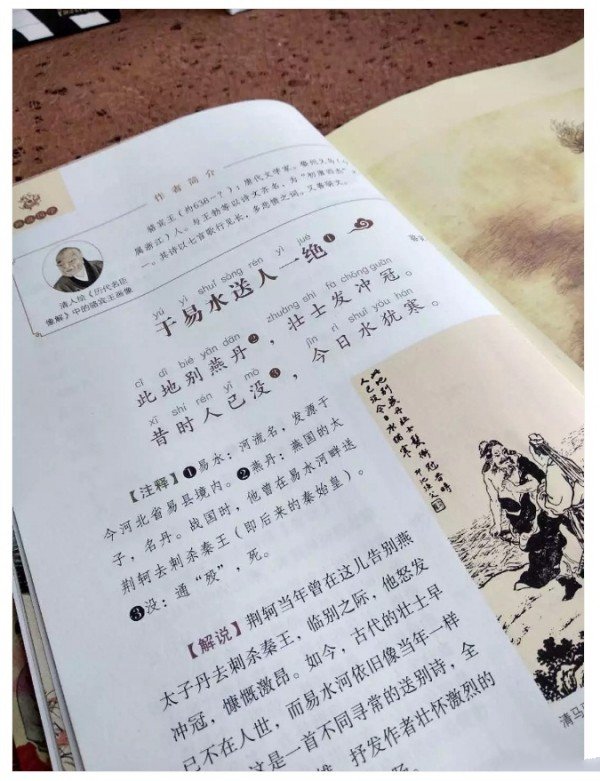 作者简介
骆宾王（约638—？），唐代文学家。婺州义乌（今
属浙江）人。与王勃等以诗文齐名，为“初唐四杰”之
一。其诗以七言歌行见长，多悲愤之词。又善骈文。
清人绘《历代名臣
像解》中的骆宾王画像
yú yì shuǐ sòng rén yì jué
于易水送人一绝❶
cǐ dì bié yān dān zhuàng shì fà chōng guān
此地别燕丹❷，壮士发冲冠。
xī shí rén yǐ mò jīn rì shuǐ yóu hán
昔时人已没❸，今日水犹寒。
【注释】❶易水：河流名，发源于
今河北省易县境内。❷燕丹：燕国的太
子，名丹。战国时，他曾在易水河畔送
荆轲去刺杀秦王（即后来的秦始皇）。
❸没：通“殁”，死。
【解说】荆轲当年曾在这儿告别燕
太子丹去刺杀秦王，临别之际，他怒发
冲冠，慷慨激昂。如今，古代的壮士早
已不在人世，而易水河依旧像当年一样
这是一首不同寻常的送别诗，全
抒发作者壮怀激烈的
此地别燕丹壮士髮衝冠昔時
人已没今日水猶寒
清马